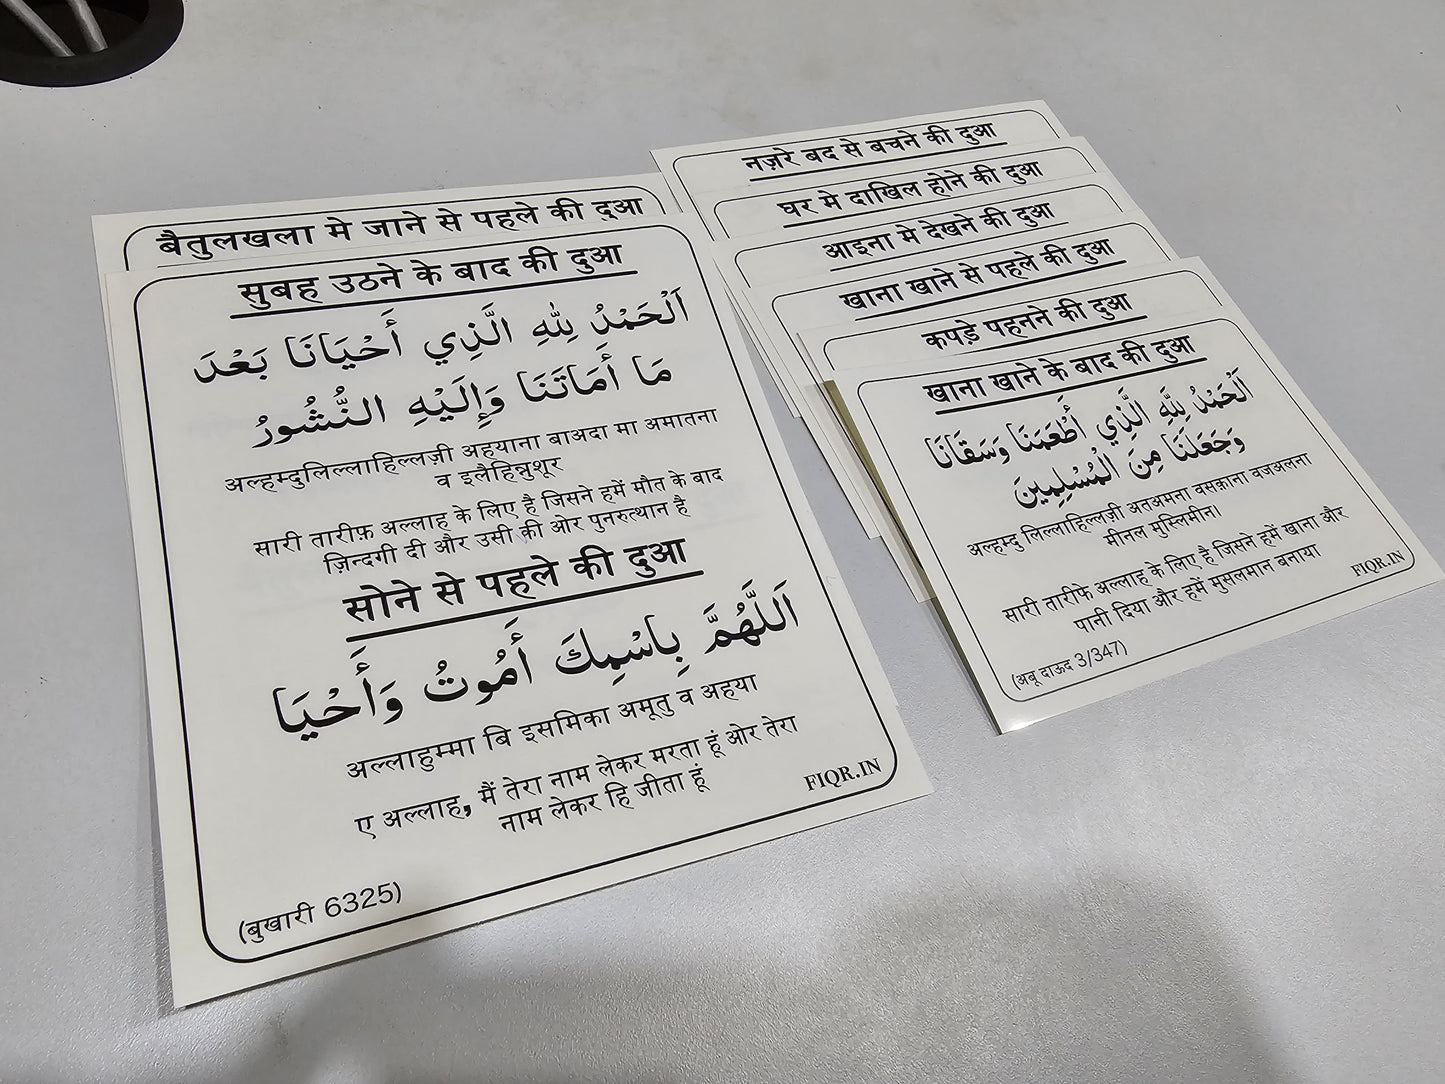 बैतुलखला मे जाने से पहले की दुआ
सुबह उठने के बाद की दुआ
اَلْحَمْدُ لِلّٰهِ الَّذِي أَحْيَانَا بَعْدَ
مَا أَمَاتَنَا وَإِلَيْهِ النُّشُورُ
अल्हम्दुलिल्लाहिल्लज़ी अहयाना बाअदा मा अमातना
व इलैहिन्नुशूर
सारी तारीफ़ अल्लाह के लिए है जिसने हमें मौत के बाद
ज़िन्दगी दी और उसी की ओर पुनरुत्थान है
सोने से पहले की दुआ
اَللَّهُمَّ بِاسْمِكَ أَمُوتُ وَأَحْيَا
अल्लाहुम्मा बि इसमिका अमूतु व अहया
ए अल्लाह, मैं तेरा नाम लेकर मरता हूं ओर तेरा
नाम लेकर हि जीता हूं
FIQR.IN
(बुखारी 6325)
नज़रे बद से बचने की दुआ
घर मे दाखिल होने की दुआ
आइना मे देखने की दुआ
खाना खाने से पहले की दुआ
कपड़े पहनने की दुआ
खाना खाने के बाद की दुआ
اَلْحَمْدُ لِلّٰهِ الَّذِي أَطْعَمَنَا وَسَقَانَا
وَجَعَلَنَا مِنَ الْمُسْلِمِينَ
अल्हम्दु लिल्लाहिल्लज़ी अतअमना वसक़ाना वजअलना
मीनल मुस्लिमीन।
सारी तारीफे अल्लाह के लिए है जिसने हमें खाना और
पानी दिया और हमें मुसलमान बनाया
FIQR.IN
(अबू दाऊद 3/347)